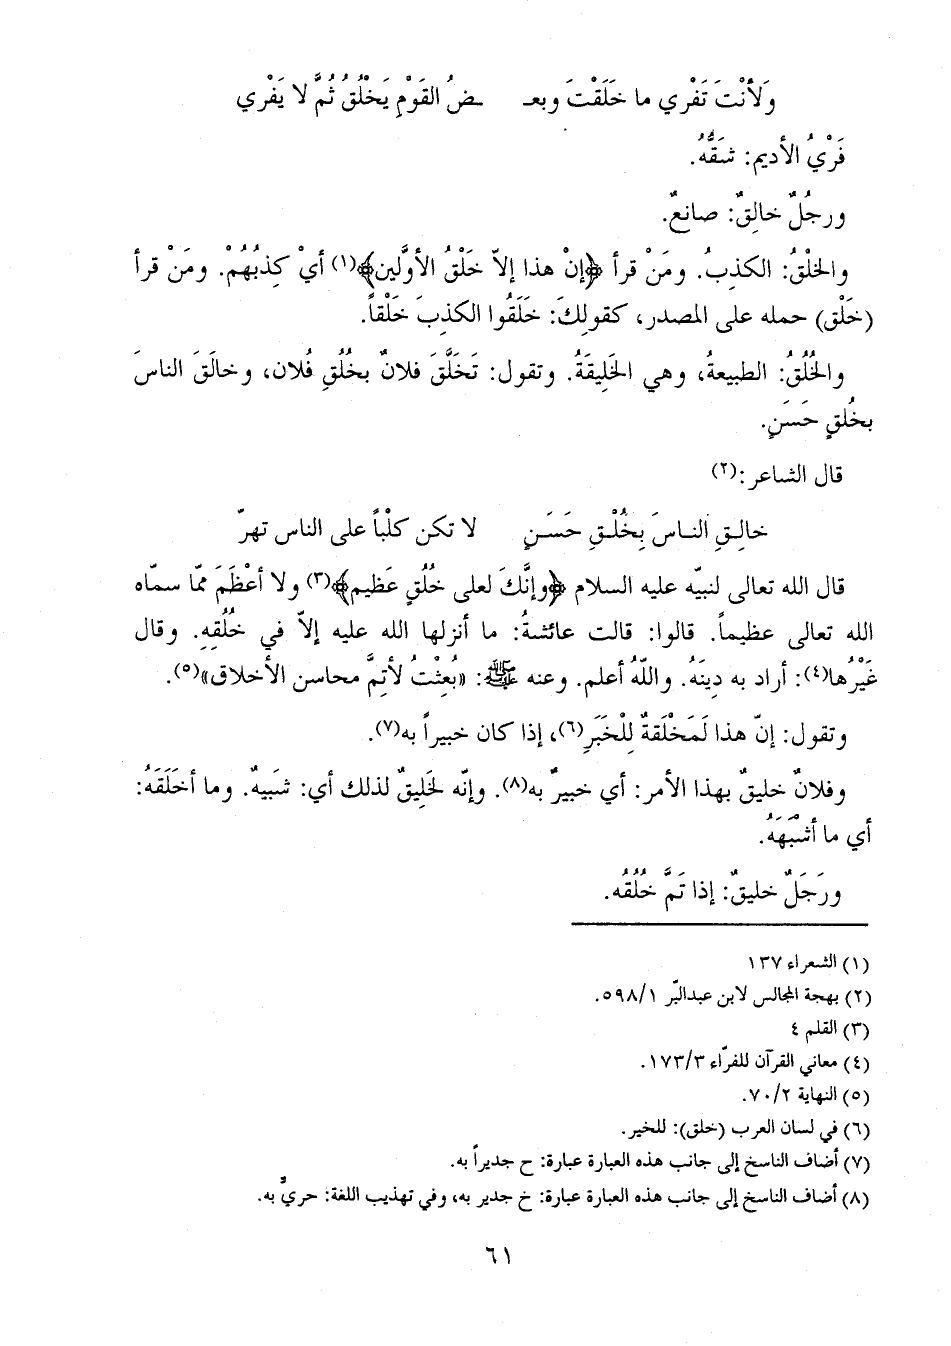 وَلأنْتَ تَفْري ما خَلَقْتَ وبعـ ـضُ القَوْمِ يَخْلُقُ ثُمَّ لا يَفْري
فَرْيُ الأديم: شَقُّهُ.
ورجُلٌ خالِقٌ: صانعٌ.
والخلْقُ: الكذِبُ. ومَنْ قرأ ﴿إنْ هذا إلاّ خَلْقُ الأوَّلين﴾(١) أيْ كذِبُهُمْ. ومَنْ قرأ
(خَلْق) حمله على المصدر، كقولِكَ: خَلَقُوا الكذِبَ خَلْقاً.
والخُلُقُ: الطبيعةُ، وهي الخَلِيقَةُ. وتقول: تَخَلَّقَ فلانٌ بخُلُقِ فُلان، وخالَقَ الناسَ
بخُلقٍ حَسَنٍ.
قال الشاعر:(٢)
خالِـقِ النـاسَ بِخُلْـقِ حَسَـنٍ لا تكن كلْباً على الناس تهرّ
قال الله تعالى لنبيّه عليه السلام ﴿وإنَّكَ لعلى خُلُقٍ عَظيم﴾(٣) ولا أعْظَمَ ممّا سمّاه
الله تعالى عظيماً. قالوا: قالت عائشةُ: ما أنزلها الله عليه إلاّ في خُلُقِهِ. وقال
غَيْرُها(٤): أراد به دِينَهُ. واللّهُ أعلم. وعنه ﷺ: «بُعِثْتُ لأتمَّ محاسن الأخلاق»(٥).
وتقول: إنّ هذا لَمَخْلَقةٌ لِلْخَبَرِ(٦)، إذا كان خبيراً به(٧).
وفلانٌ خليقٌ بهذا الأمر: أي خبيرٌ به(٨). وإنّه لخَلِيقٌ لذلك أي: شَبيهٌ. وما أخلَقَهُ:
أي ما أشْبَهَهُ.
ورَجَلٌ خليقٌ: إذا تَمَّ خُلُقُه.
(١) الشعراء ١٣٧
(٢) بهجة المجالس لابن عبدالبّر ٥٩٨/١.
(٣) القلم ٤
(٤) معاني القرآن للفرّاء ١٧٣/٣.
(٥) النهاية ٧٠/٢.
(٦) في لسان العرب (خلق): للخير.
(٧) أضاف الناسخ إلى جانب هذه العبارة عبارة: ح جديراً به.
(٨) أضاف الناسخ إلى جانب هذه العبارة عبارة: خ جدير به، وفي تهذيب اللغة: حريٌّ به.
٦١